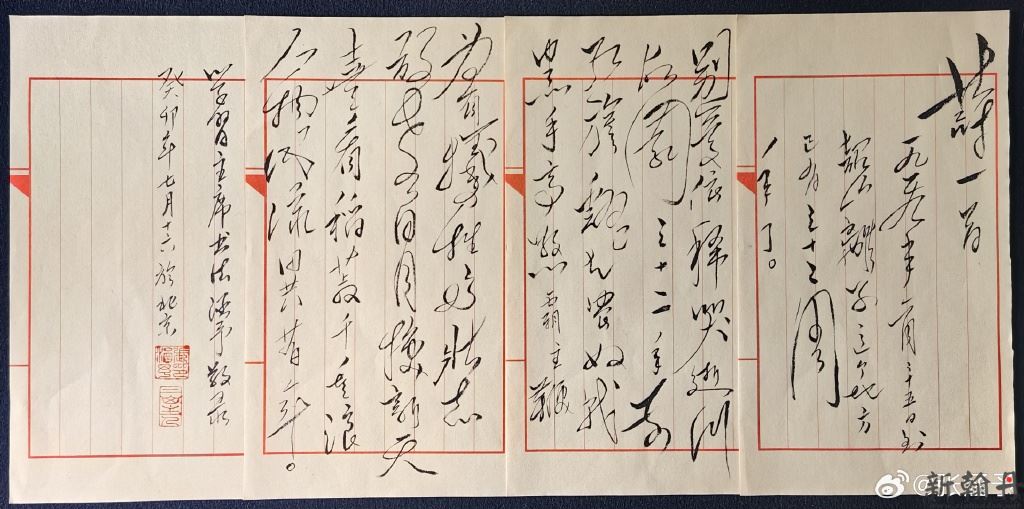 詩一首
一九五九年六月二十五日到
韶山離别这个地方
已有三十二周
年了。
别梦依稀哭逝川
故園三十二年前
红旗飘起农奴戟
黑手高懸霸主鞭
為有犧牲多壮志
敢教日月换新天
喜看稻菽千重浪
人物风流昔年。
学習主席书法敬录
癸卯年七月十六於北京
新翰